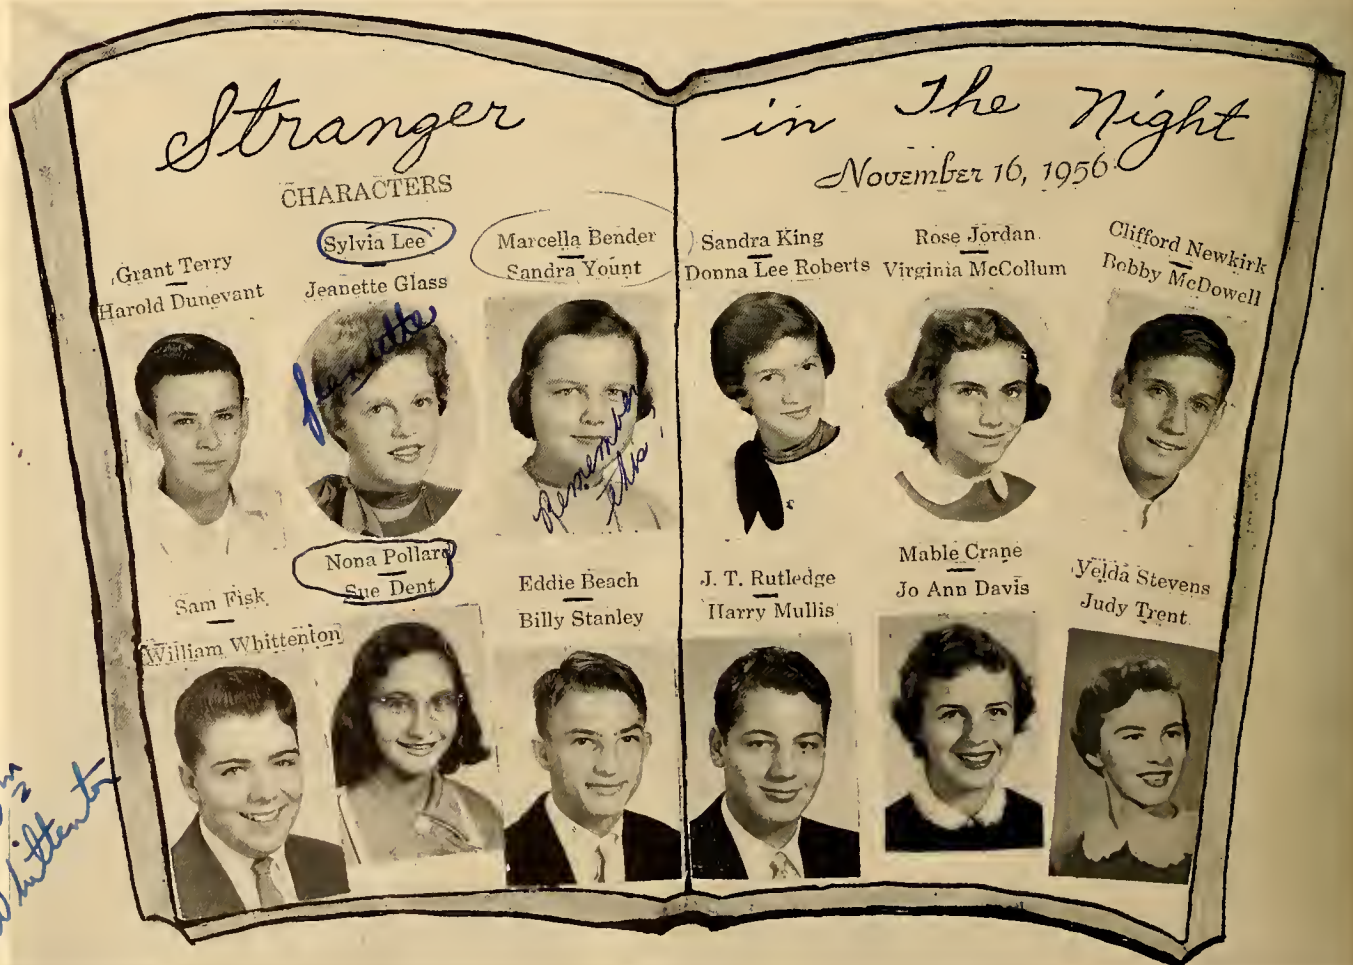 Stranger in The Night
November 16, 1956
CHARACTERS
Grant Terry
Harold Dunevant
Sylvia Lee
Jeanette Glass
Jeanette
Marcella Bender
Sandra Yount
Remember this!
Sandra King
Donna Lee Roberts
Rose Jordan
Virginia McCollum
Clifford Newkirk
Bobby McDowell
Sam Fisk
William Whittenton
Nona Pollard
Sue Dent
Eddie Beach
Billy Stanley
J. T. Rutledge
Harry Mullis
Mable Crane
Jo Ann Davis
Velda Stevens
Judy Trent
Whittenton